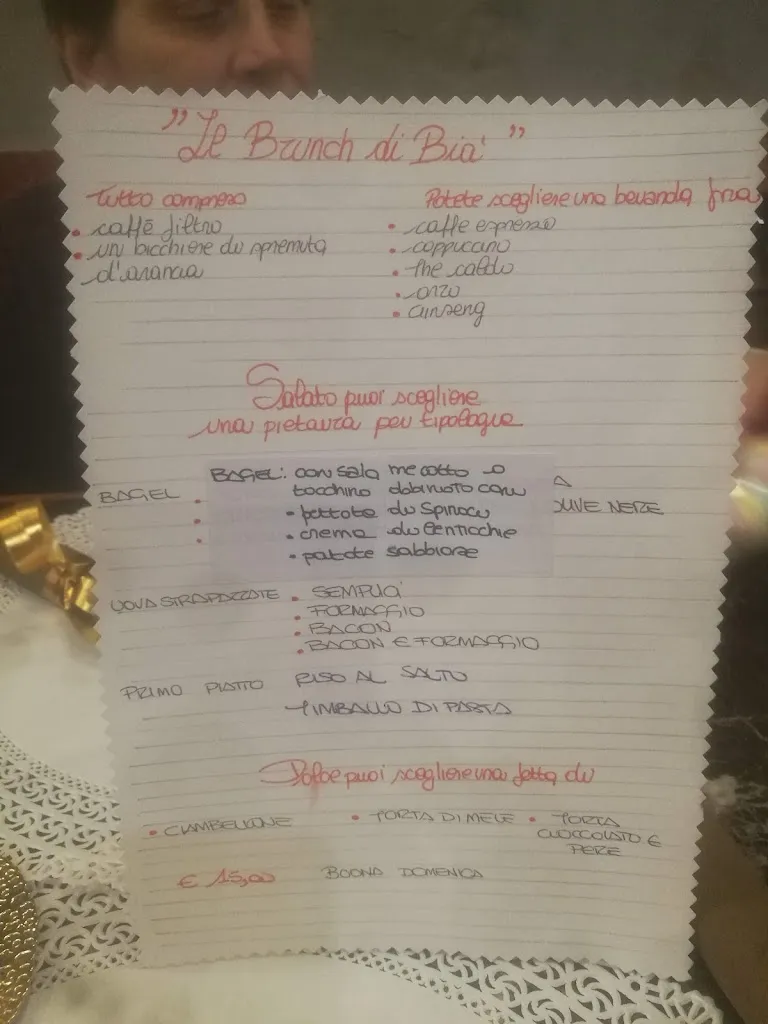 "Le Brunch di Bià"
Tutto compreso
• caffè filtro
• un bicchiere di spremuta
d'arancia
Potete scegliere una bevanda fra
• caffe espresso
• cappuccino
• the caldo
• orzo
• ginseng
Salato puoi scegliere
una pietanza per tipologia
BAGEL
BAGEL: con salame cotto o
tacchino abbinato con
• frittata di spinaci
• crema di lenticchie
• patate sabbiose
A
OLIVE NERE
UOVA STRAPAZZATE
• SEMPLICI
• FORMAGGIO
• BACON
• BACON E FORMAGGIO
PRIMO PIATTO
RISO AL SALTO
TIMBALLO DI PASTA
Dolce puoi scegliere una fetta di
• CIAMBELLONE
• TORTA DI MELE
• TORTA
CIOCCOLATO E
PERE
€ 15,00
BUONA DOMENICA